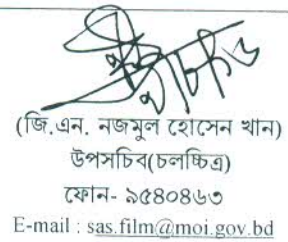 (জি.এন. নজমুল হোসেন খান)
উপসচিব(চলচ্চিত্র)
ফোন- ৯৫৪০৪৬৩
E-mail : sas.film@moi.gov.bd